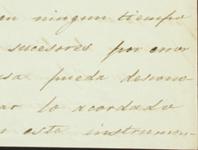 en ningun tiempo
sucesores por error
esa pueda descono
ar lo acordado
n este instrumen-